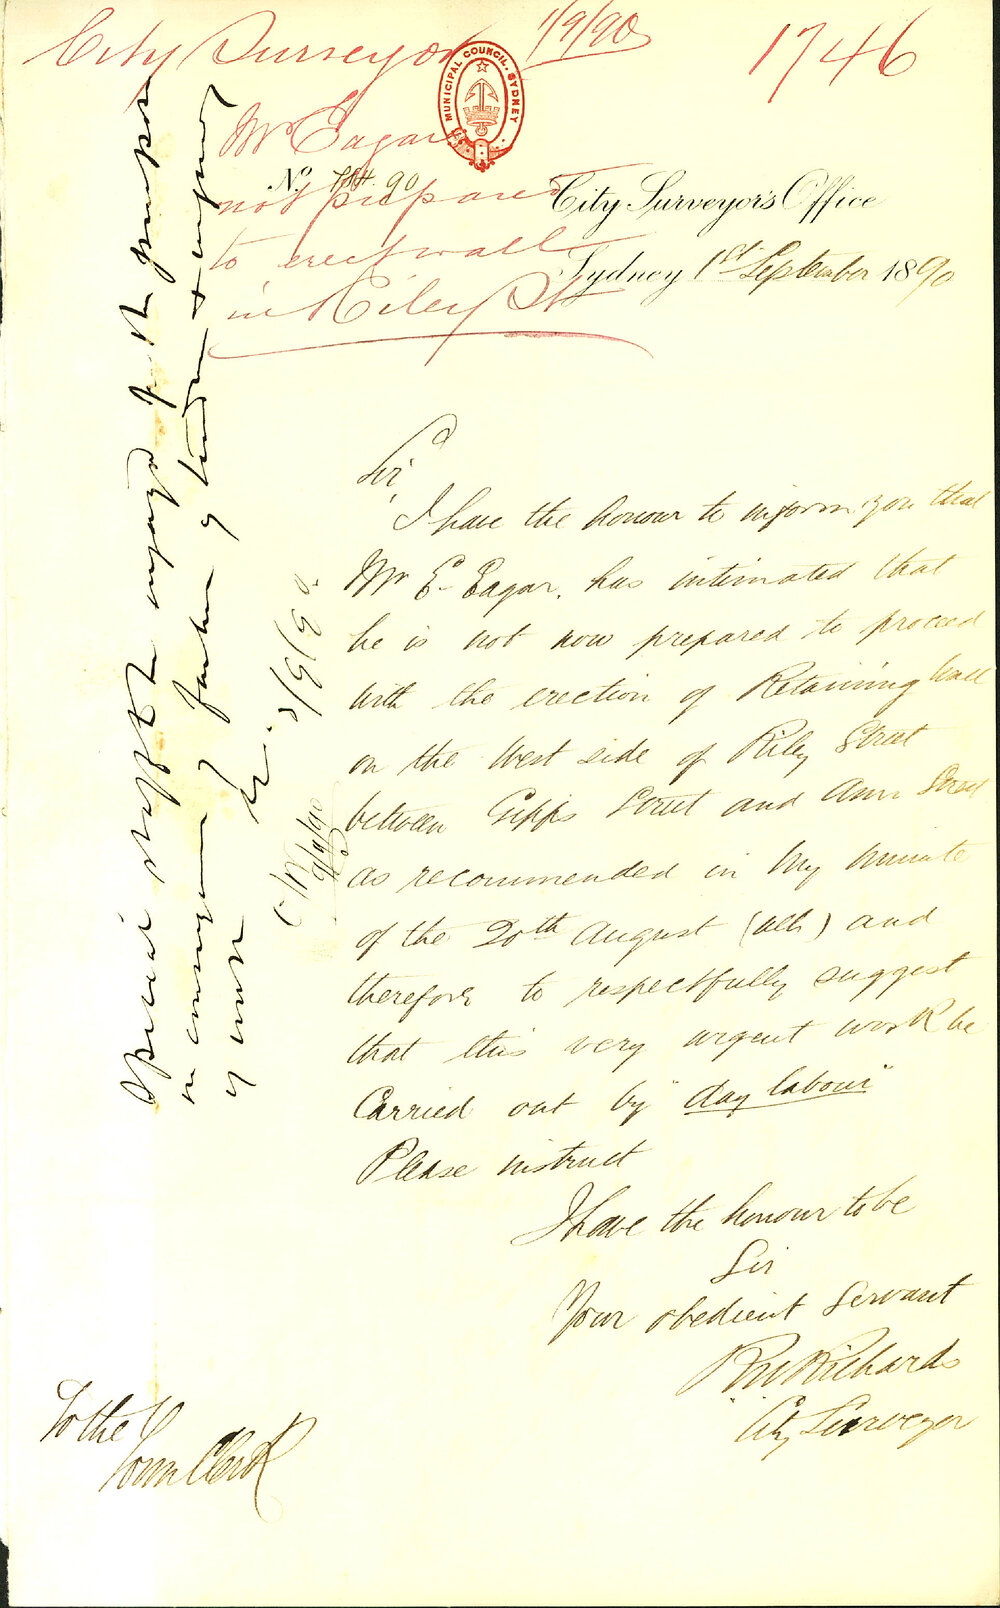 City Surveyor 1/9/90
1746
MUNICIPAL COUNCIL. SYDNEY
Mr Eagar
not prepared
to erect wall
in Riley St
No. 90
City Surveyor's Office
Sydney 1st September 1890
Sir
I have the honour to inform you that
Mr E. Eagar. has intimated that
he is not now prepared to proceed
with the erection of Retaining Wall
on the West side of Riley Street
between Gipps Street and Ann Street
as recommended in My Minute
of the 20th August (ult) and
therefore to respectfully suggest
that this very urgent work be
Carried out by "day labour"
Please instruct
I have the honour to be
Sir
Your obedient Servant
RW Richards
City Surveyor
To the
Town Clerk
Special staff to be engaged for the purpose
in consequence of further
of work
9/9/90